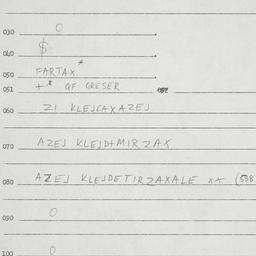 030 O
040 $
050 FARTAX *
051 + * QF GRESER
060 ZI KLEJCAXAZEJ
070 AZEJ KLEJD+MIRZAX
080 AZEJ KLEJDETIRZAXALE XX (538
090 O
100 O